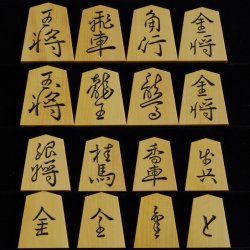 王将 飛車 角行 金将
玉将 龍王 龍馬 金将
銀将 桂馬 香車 歩兵
金 全 と